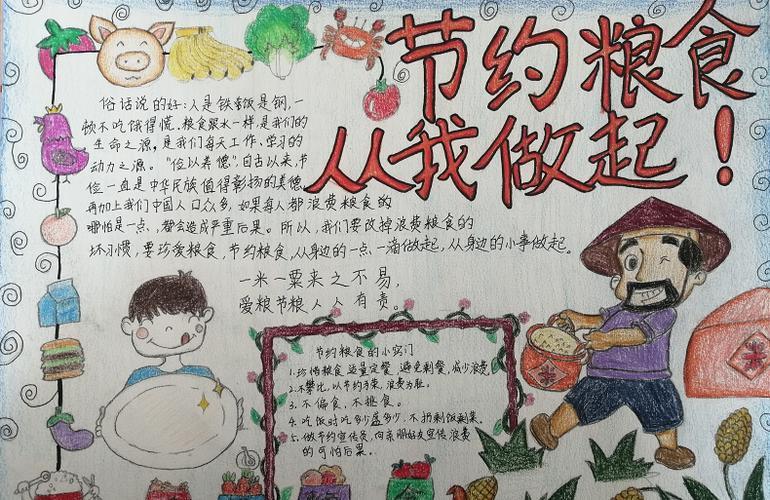 节约粮食
从我做起！
俗话说的好：人是铁饭是钢，一
顿不吃饿得慌。粮食跟水一样是我们的
生命之源，是我们每天工作、学习的
动力之源。“俭以养德”，自古以来，节
俭一直是中华民族值得彰扬的美德，
再加上我们中国人口众多，如果每人都浪费粮食的
哪怕是一点，都会造成严重后果。所以，我们要改掉浪费粮食的
坏习惯，要珍爱粮食，节约粮食，从身边的一点一滴做起，从身边的小事做起。
一米一粟来之不易，
爱粮节粮人人有责。
节约粮食的小窍门
1.珍惜粮食，适量定餐，避免剩餐，减少浪费。
2.不攀比，以节约为荣，浪费为耻。
3.不偏食，不挑食。
4.吃饭时吃多少盛多少，不扔剩饭剩菜。
5.做节约宣传员，向亲朋好友宣传浪费
的可怕后果。
米